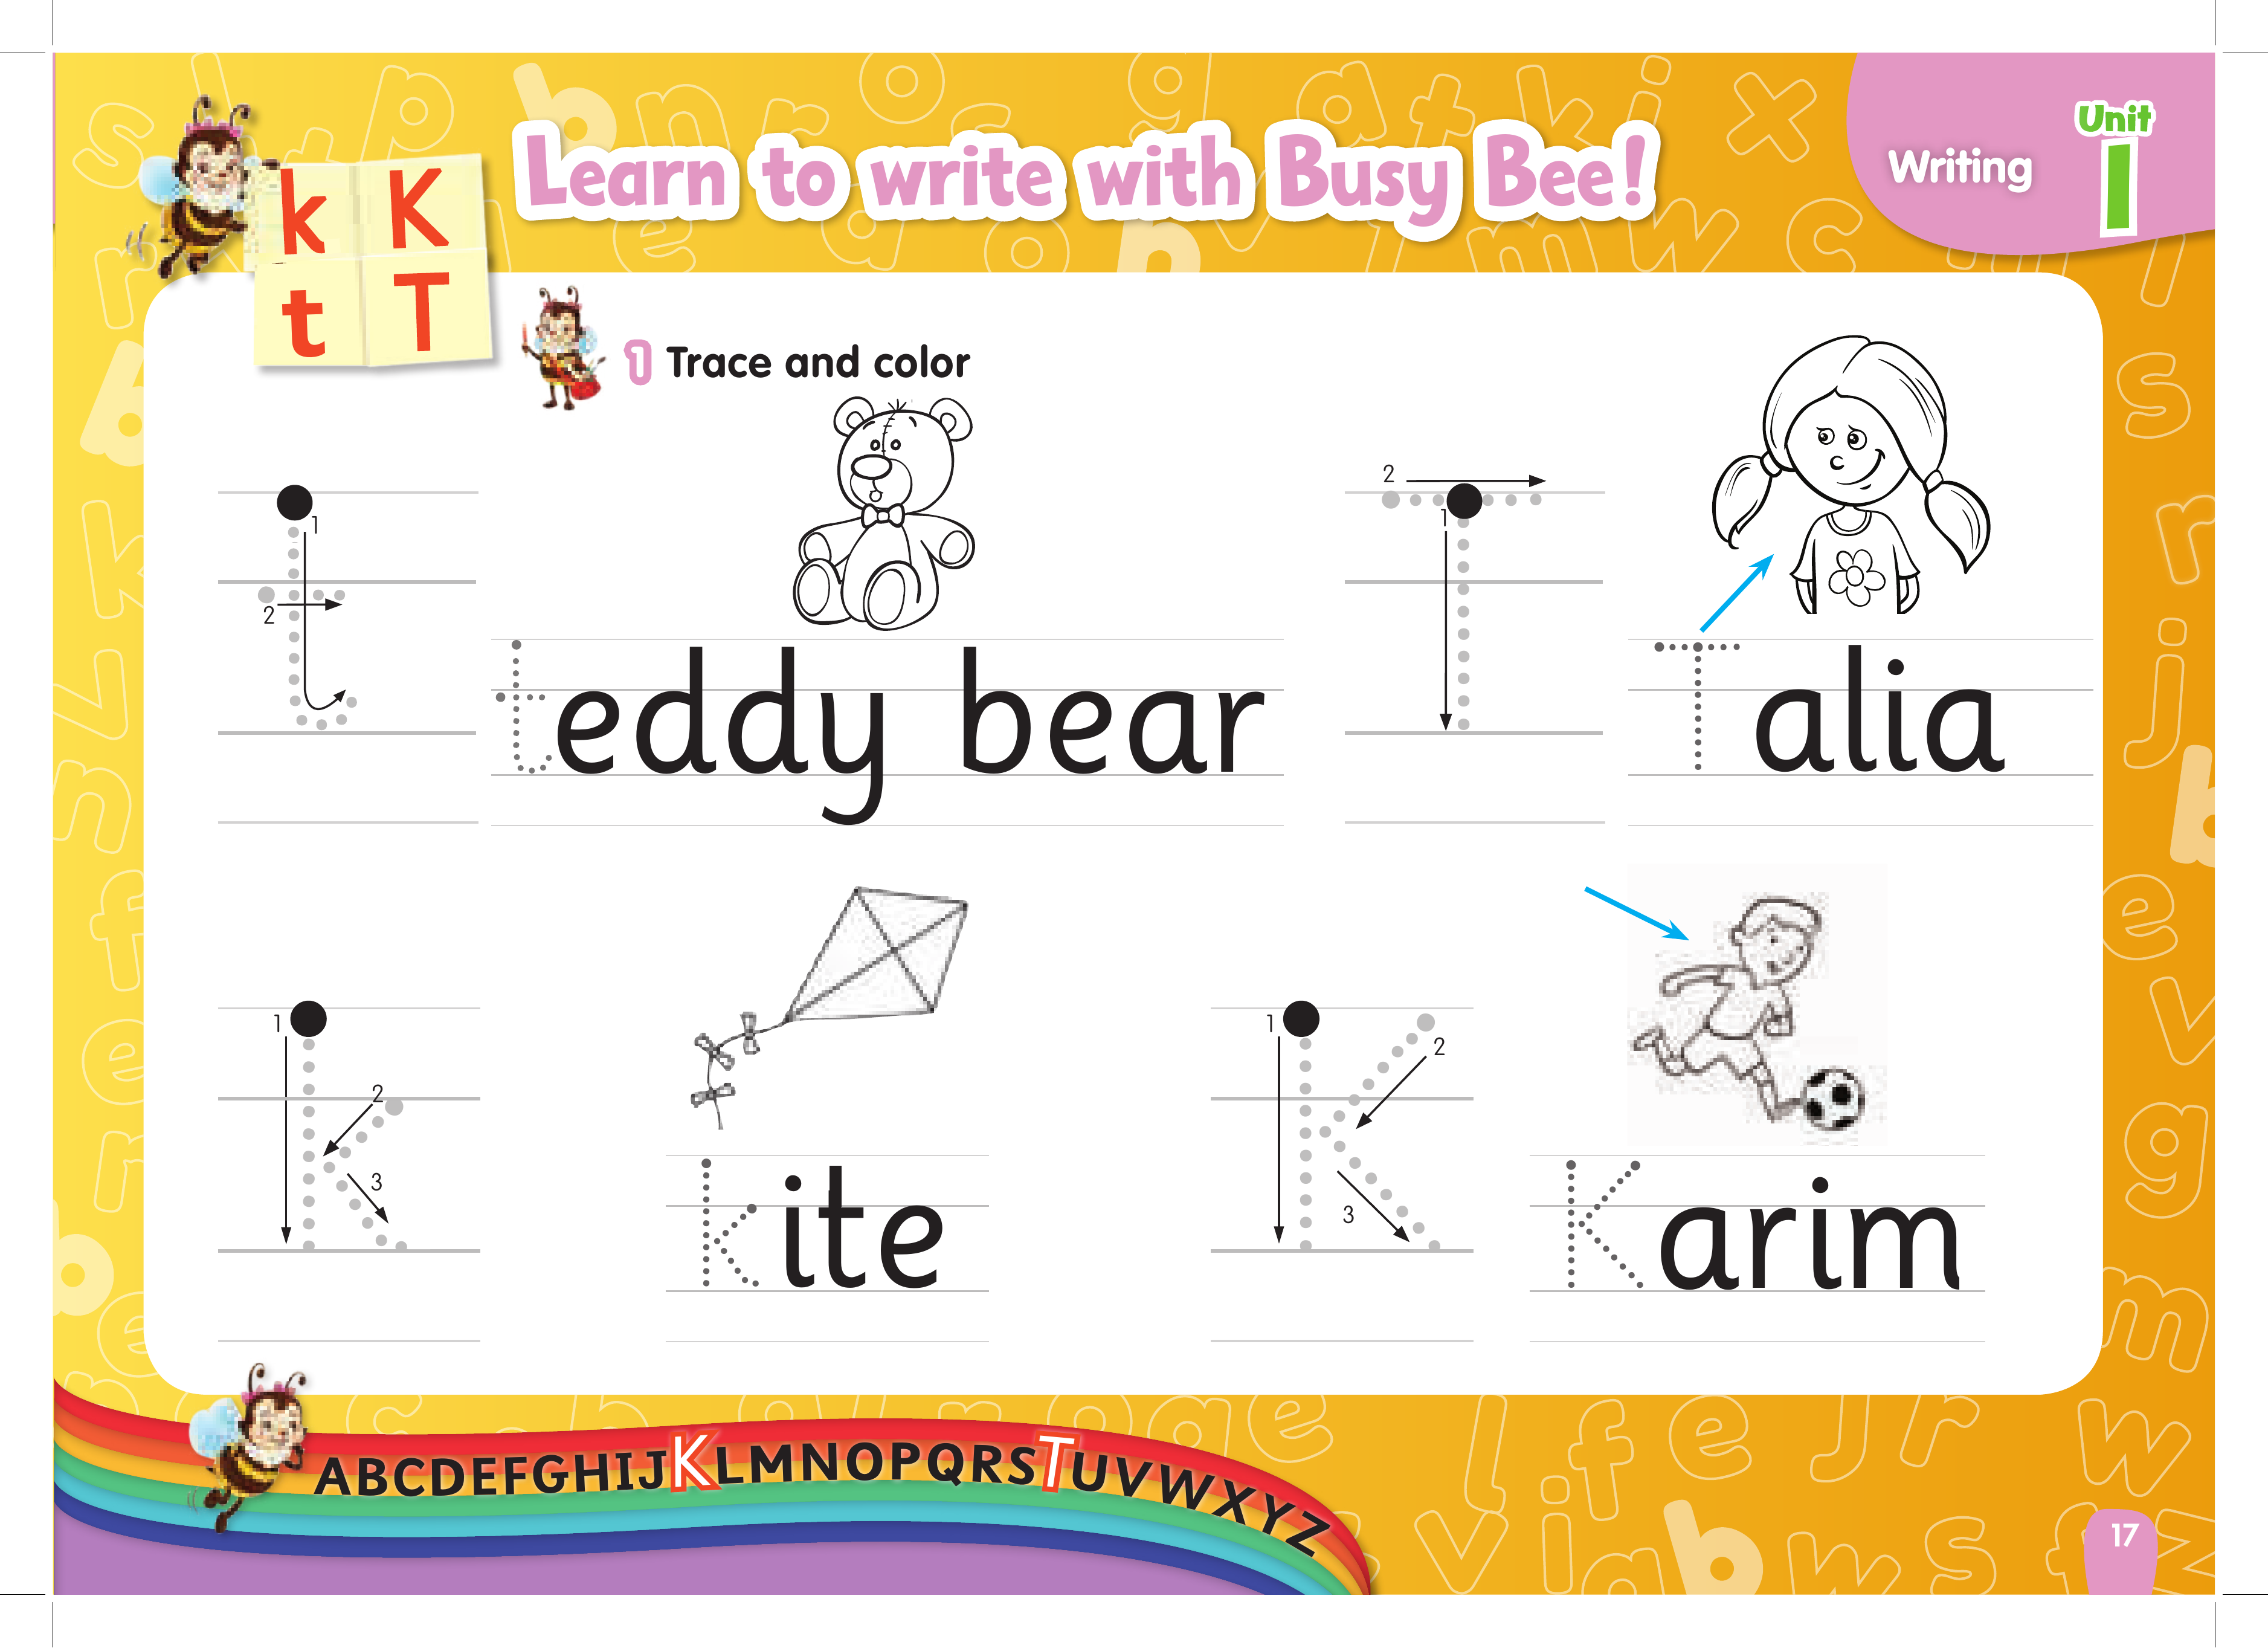 Learn to write with Busy Bee!
Writing
Unit
1
k K
t T
1 Trace and color
1
2
teddy bear
2
1
Talia
1
2
3
kite
1
2
3
Karim
ABCDEFGHIJKLMNOPQRSTUVWXYZ
17